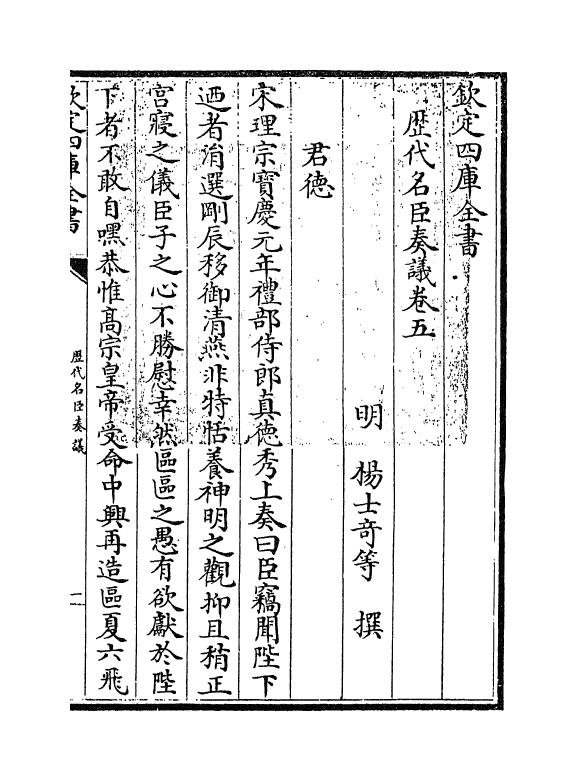 欽定四庫全書
歴代名臣奏議卷五
明 楊士竒等 撰
君徳
宋理宗寳慶元年禮部侍郎真徳秀上奏曰臣竊聞陛下
迺者涓選剛辰移御清燕非特恬養神明之觀抑且稍正
宫寢之儀臣子之心不勝慰幸然區區之愚有欲獻於陛
下者不敢自嘿恭惟髙宗皇帝受命中興再造區夏六飛
欽定四庫全書
歴代名臣奏議
一